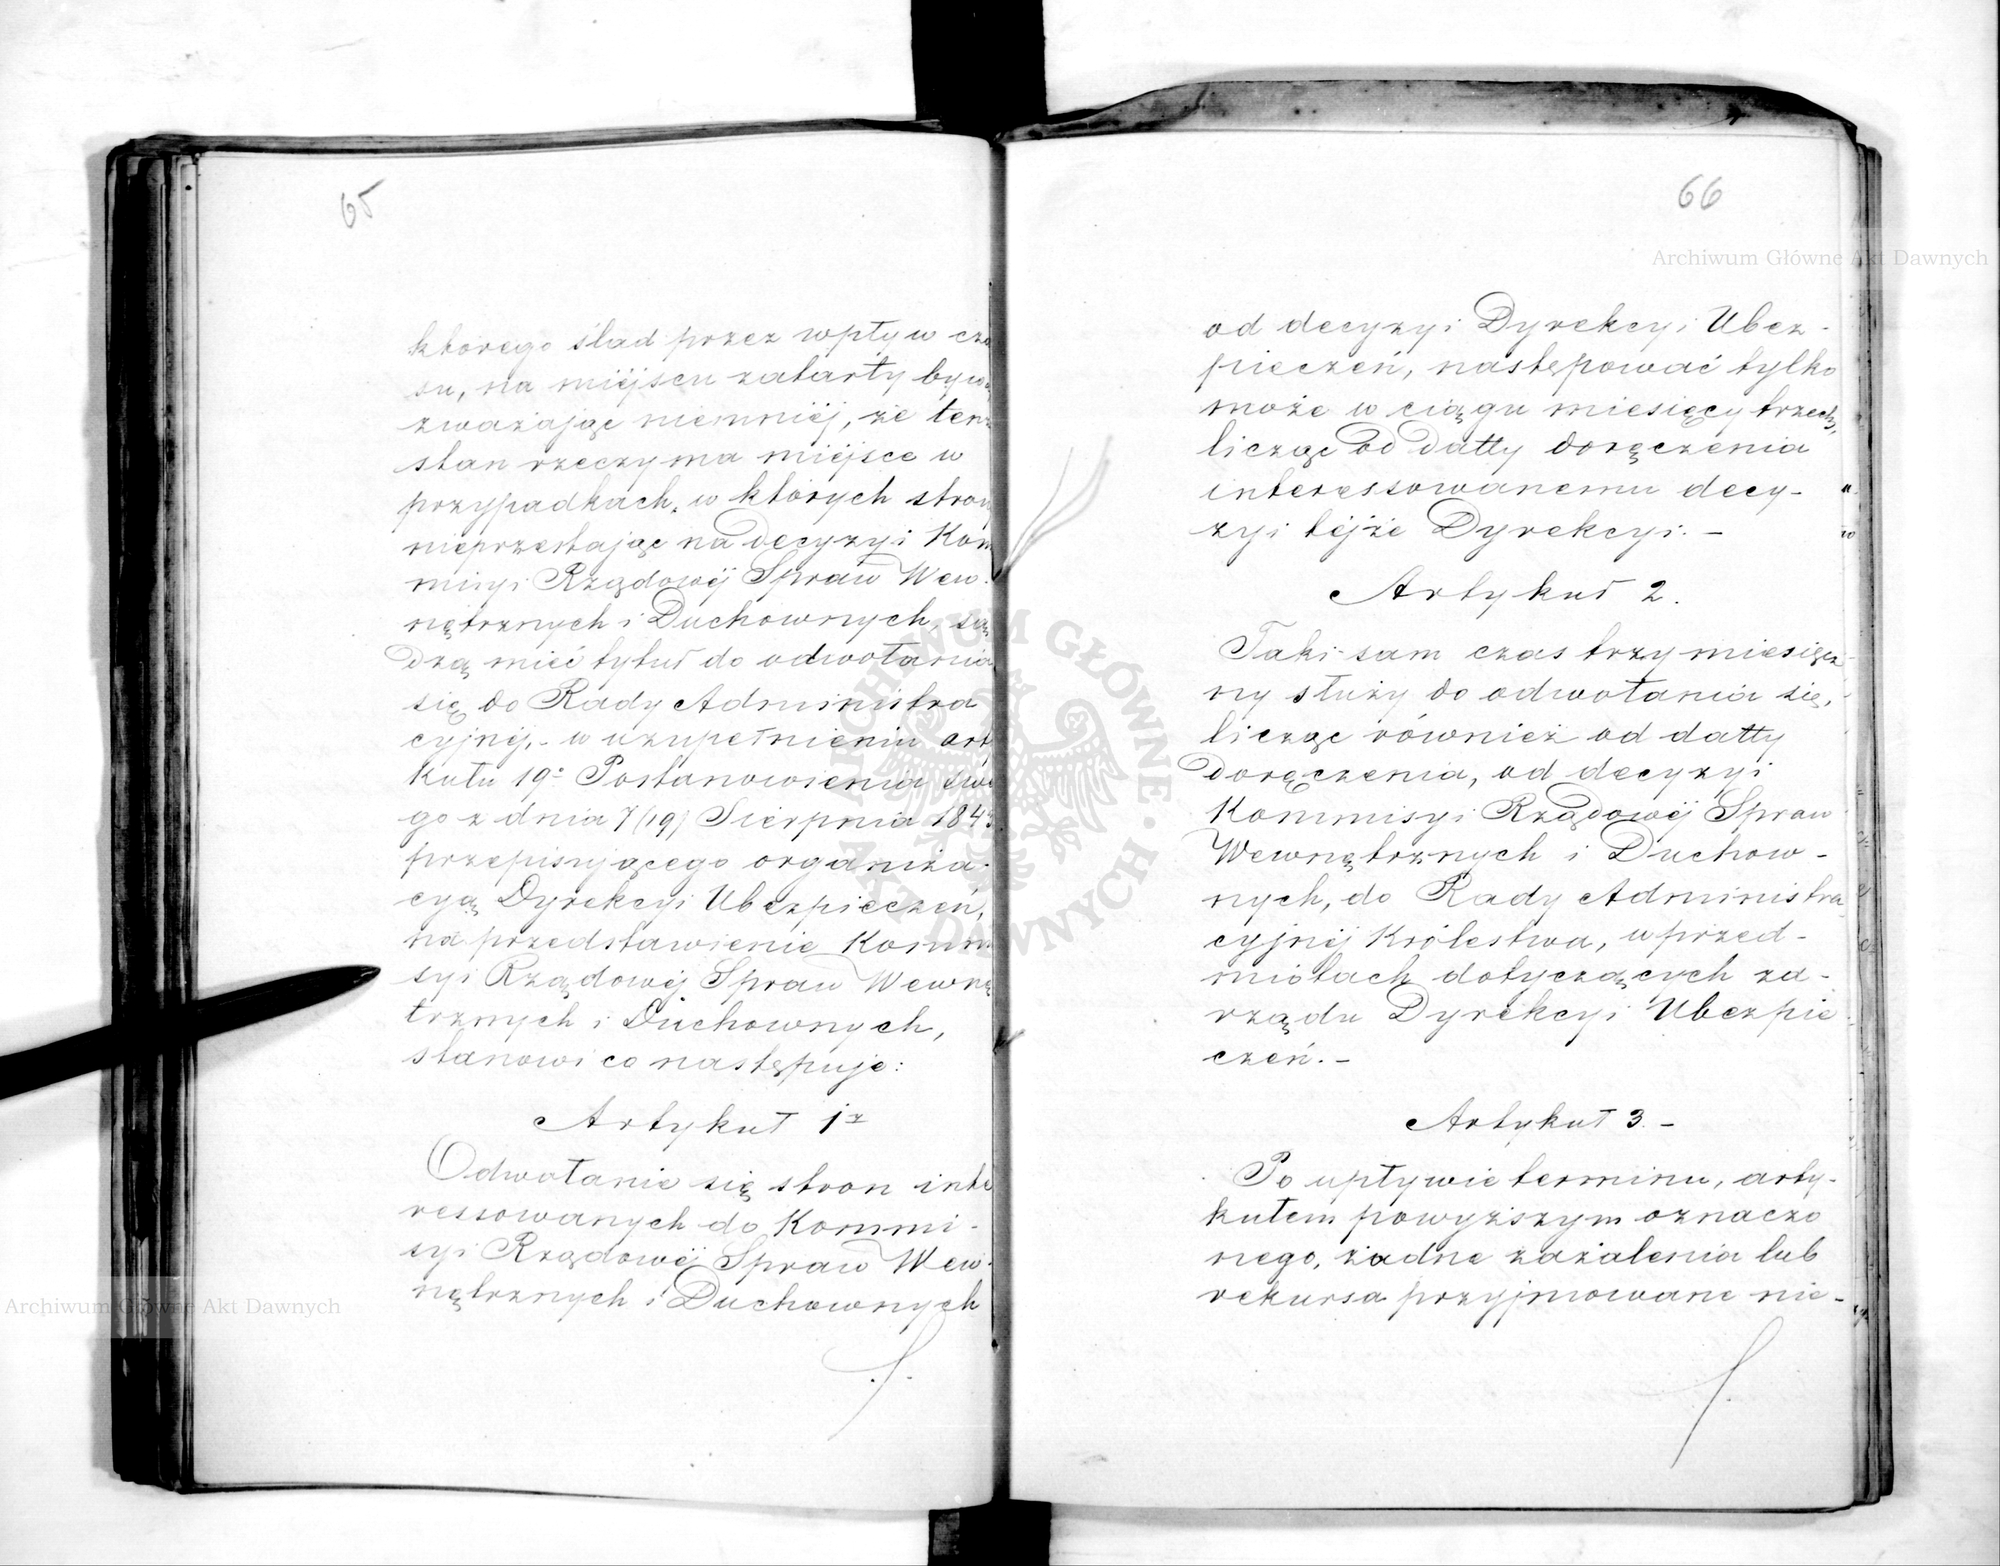 65
którego ślad przez wpływ cza
su, na miéjscu zatarty bywa
zważając niemniéj, że ten
stan rzeczy ma miéjsce w
przypadkach, w których stron
nieprzestając na decyzyi Kom
misyi Rządowéj Spraw Wew-
nętrznych i Duchownych, są
dzą mieć tytuł do odwołania
się do Rady Administra
cyjnéj, - w uzupełnieniu arty
kułu 19º Postanowienia swe
go z dnia 7/19) Sierpnia 1843
przepisującego organiza-
cyą Dyrekcyi Ubezpieczeń,
na przedstawienie Kommi
syi Rządowéj Spraw Wewnę
trznych i Duchownych,
stanowi co następuje:
Artykuł 1z
Odwołanie się stron inte
ressowanych do Kommi-
syi Rządowéj Spraw Wew-
nętrznych i Duchownych
66
od decyzyi Dyrekcyi Ubez-
pieczeń, następować tylko
może w ciągu miesięcy trzech,
licząc od datty doręczenia
interessowanemu decy-
zyi téjże Dyrekcyi. -
Artykuł 2.
Taki sam czas trzymiesięcz
ny służy do odwołania się,
licząc również od datty
doręczenia, od decyzyi
Kommisyi Rządowéj Spraw
Wewnętrznych i Duchow-
nych, do Rady Administra
cyjnéj Królestwa, w przed-
miotach dotyczących za-
rządu Dyrekcyi Ubezpie
czeń. -
Artykuł 3. -
Po upływie terminu, arty-
kułem powyższym oznaczo
nego, żadne zażalenia lub
rekursa przyjmowane nie-
Archiwum Główne Akt Dawnych
Archiwum Główne Akt Dawnych
ARCHIWUM GŁÓWNE AKT DAWNYCH